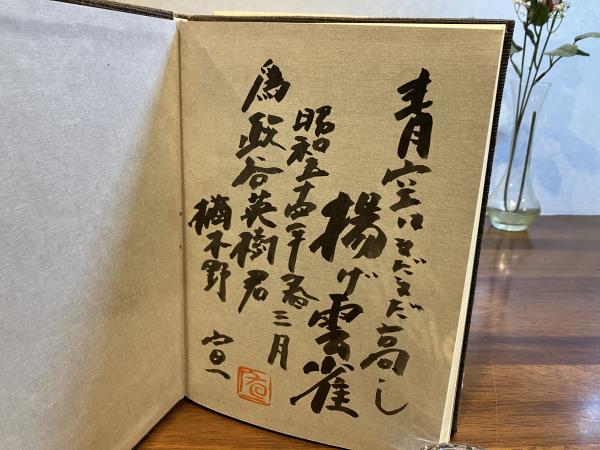 青空はまだまだ高し
揚げ雲雀
昭和五十四年春三月
為政谷英樹君
楢木野宣